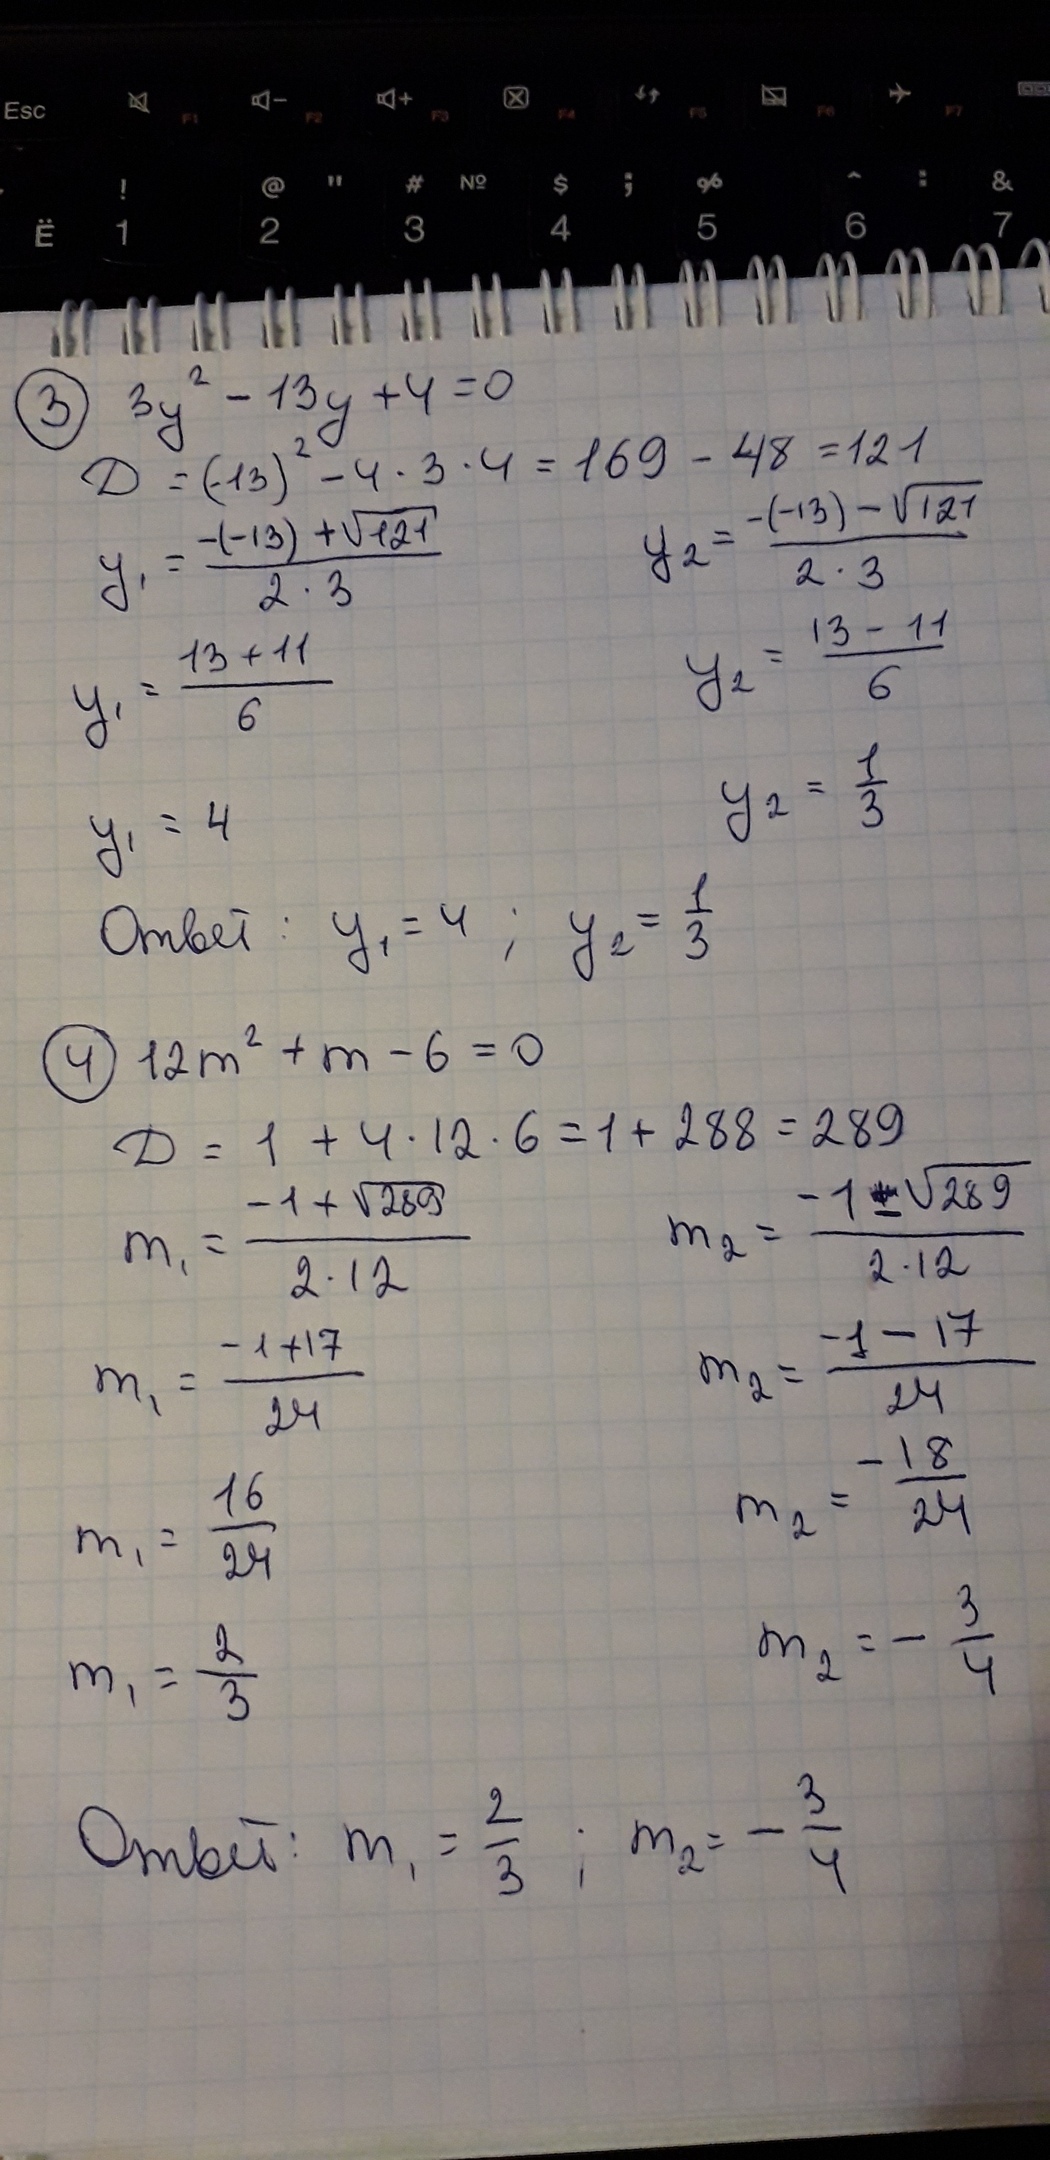 Esc F1 F2 F3 F4 F5 F6 F7
! @ " # № $ ; % ^ : &
Ё 1 2 3 4 5 6 7
③ 3y² - 13y + 4 = 0
D = (-13)² - 4 · 3 · 4 = 169 - 48 = 121
y₁ = (-(-13) + √121)/(2 · 3) y₂ = (-(-13) - √121)/(2 · 3)
y₁ = (13 + 11)/6 y₂ = (13 - 11)/6
y₁ = 4 y₂ = 1/3
Ответ: y₁ = 4 ; y₂ = 1/3
④ 12m² + m - 6 = 0
D = 1 + 4 · 12 · 6 = 1 + 288 = 289
m₁ = (-1 + √289)/(2 · 12) m₂ = (-1 - √289)/(2 · 12)
m₁ = (-1 + 17)/24 m₂ = (-1 - 17)/24
m₁ = 16/24 m₂ = -18/24
m₁ = 2/3 m₂ = - 3/4
Ответ: m₁ = 2/3 ; m₂ = - 3/4